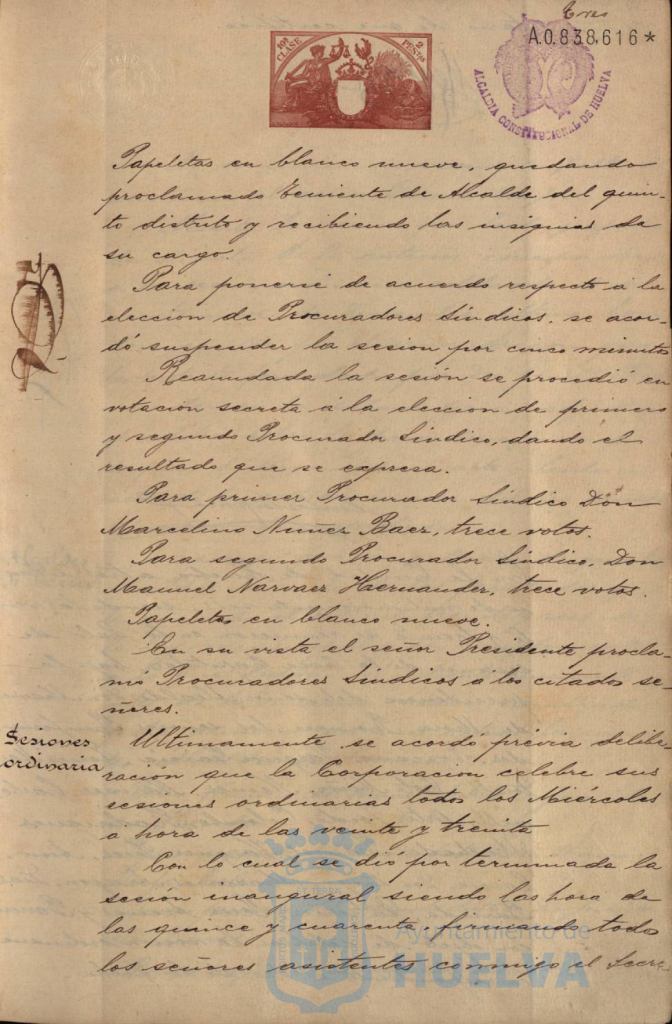 Tres
A.0.838,616*
10ª CLASE
2 PESTAS
ALCALDIA CONSTITUCIONAL DE HUELVA
Papeletas en blanco nueve, quedando
proclamado Teniente de Alcalde del quin-
to distrito y recibiendo las insignias de
su cargo.
Para ponerse de acuerdo respecto á la
eleccion de Procuradores Síndicos, se acor-
dó suspender la sesion por cinco minutos
Reanudada la sesión se procedió en
votacion secreta á la eleccion de primero
y segundo Procurador Síndico, dando el
resultado que se expresa.
Para primer Procurador Síndico Don
Marcelino Nuñez Baez, trece votos.
Para segundo Procurador Síndico, Don
Manuel Narvaez Hernandez, trece votos.
Papeletas en blanco nueve.
En su vista el señor Presidente procla-
mó Procuradores Síndicos á los citados se-
ñores.
Sesiones
ordinaria
Ultimamente se acordó prévia delibe-
ración que la Corporacion celebre sus
sesiones ordinarias todos los Miércoles
a hora de las veinte y treinta
Con lo cual se dió por terminada la
sesión inaugural siendo las hora de
las quince y cuarenta, firmando todos
los señores asistentes conmigo el Secre
Ayuntamiento de
HUELVA